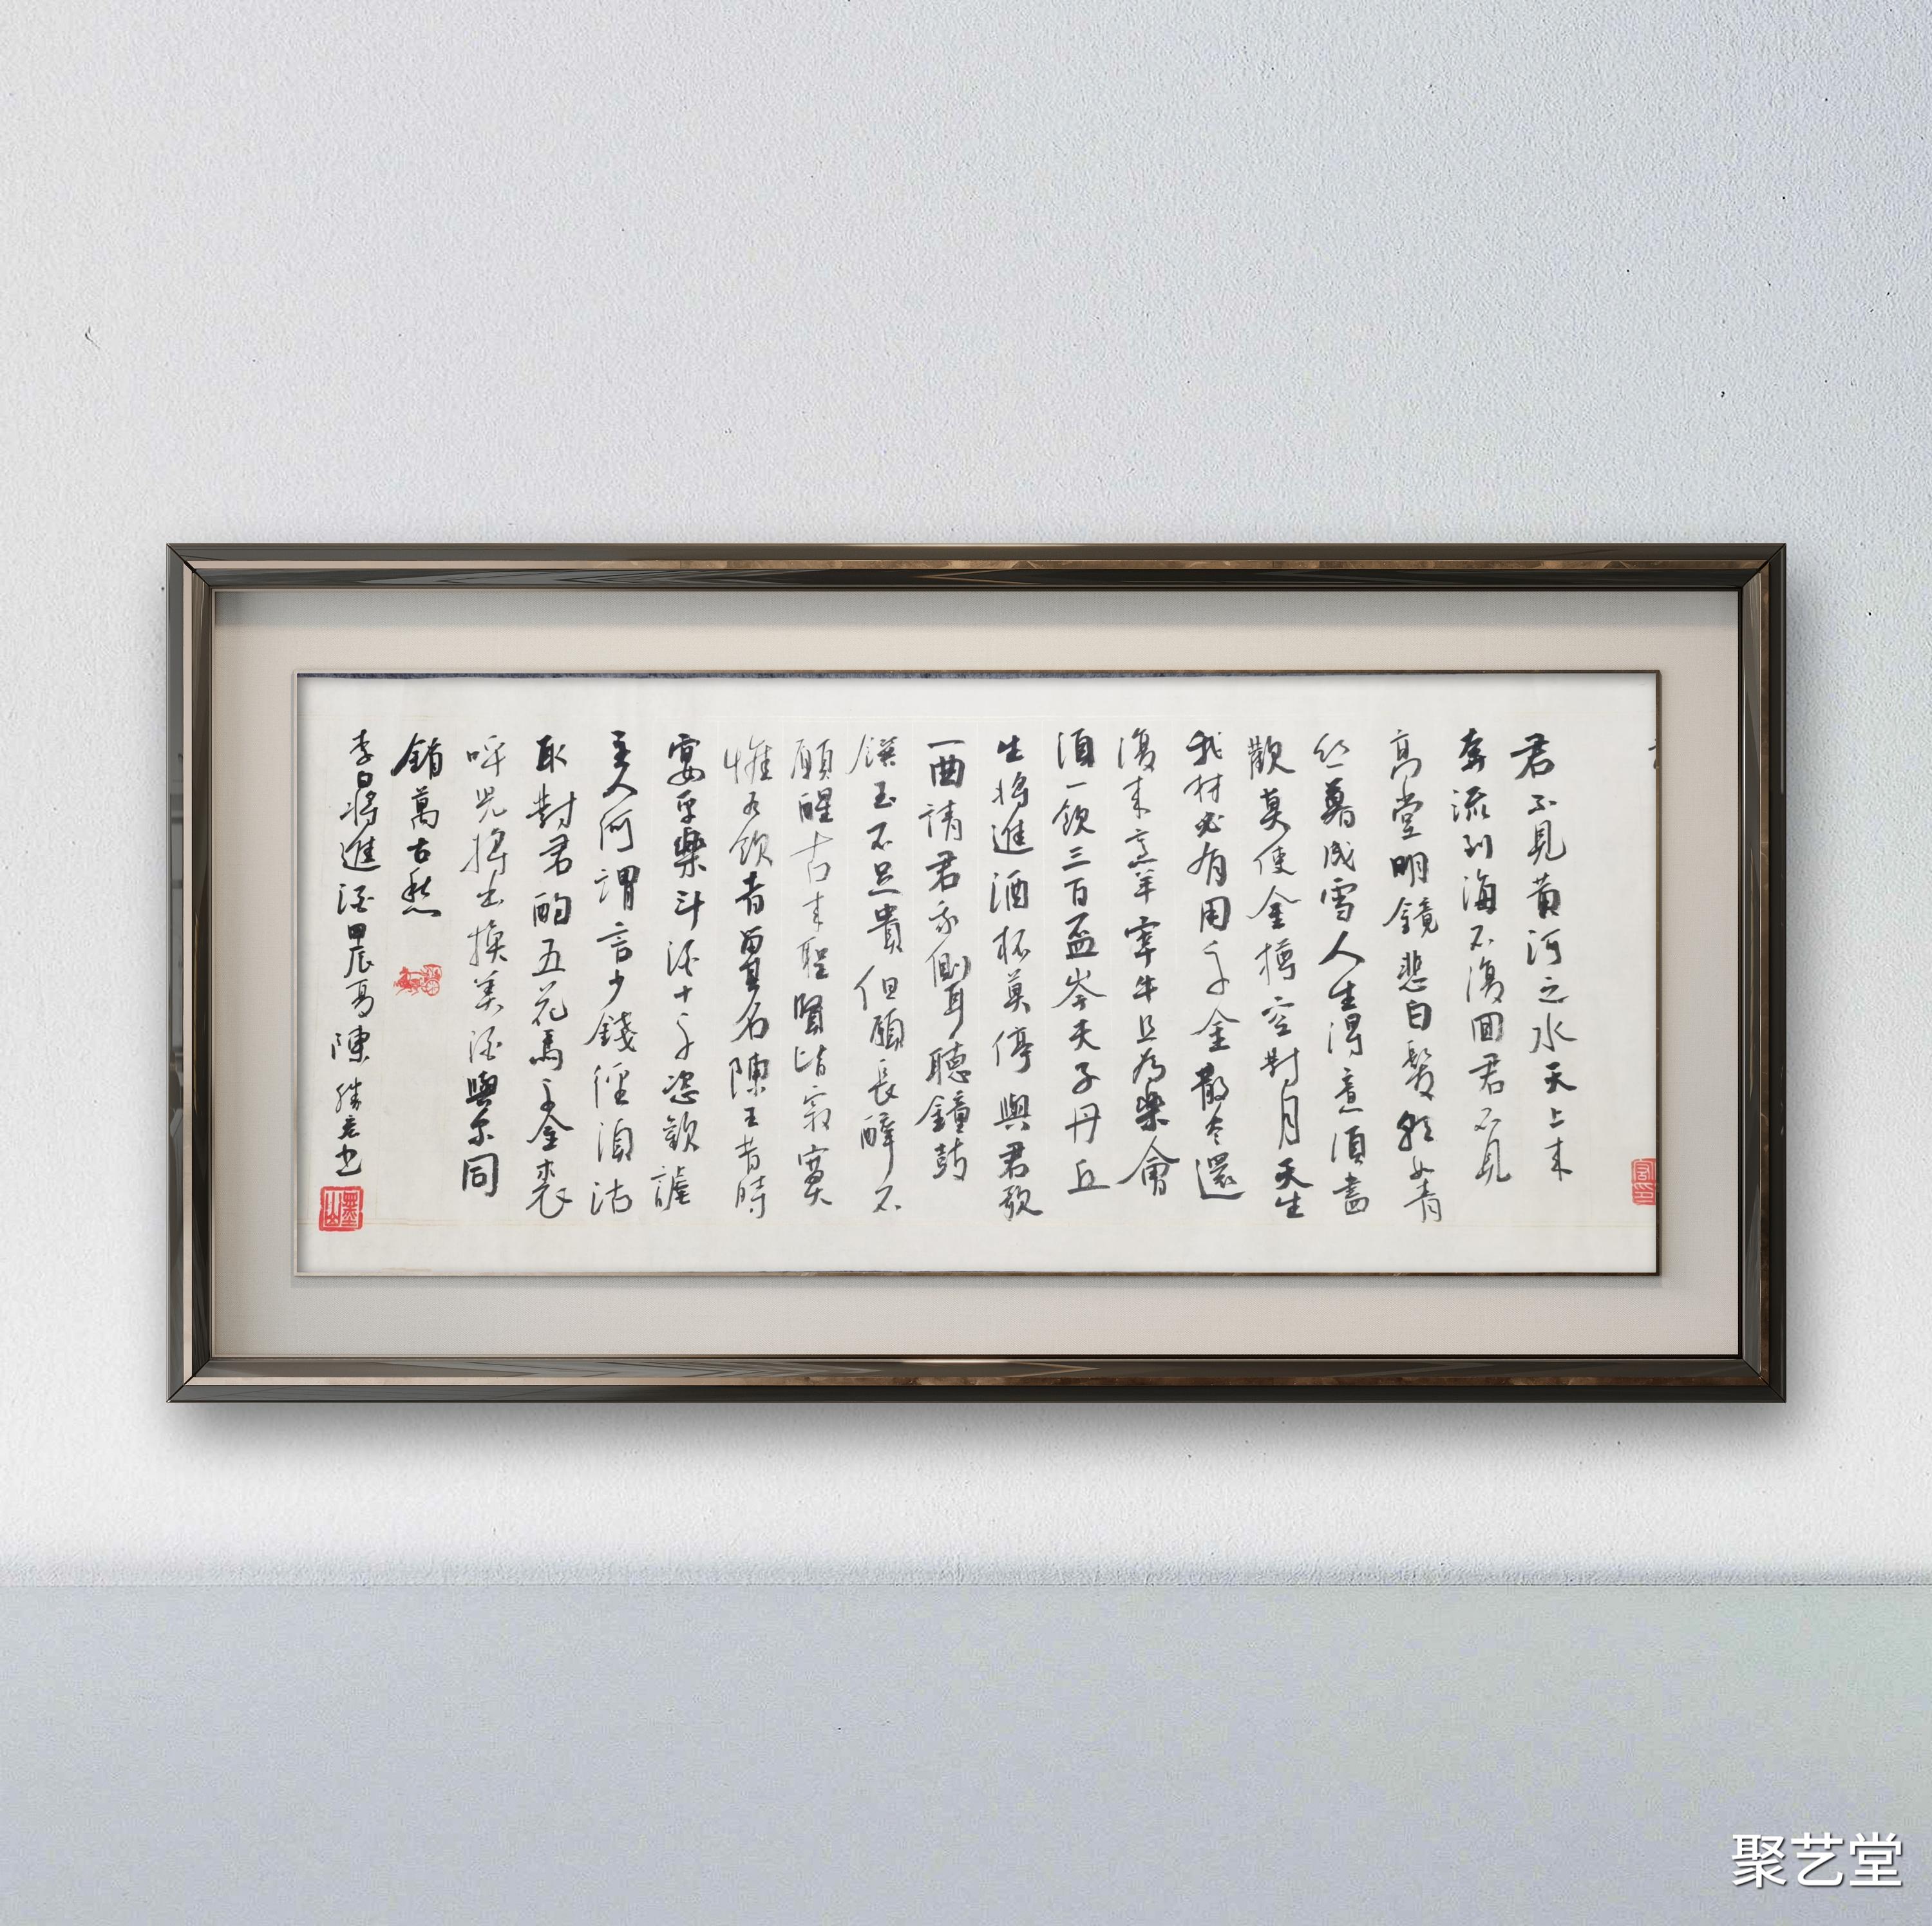 君不見黃河之水天上来
奔流到海不復回君不見
高堂明鏡悲白髮朝如青
丝暮成雪人生得意須盡
歡莫使金樽空對月天生
我材必有用千金散尽還
復来烹羊宰牛且為樂會
須一飲三百盃岑夫子丹丘
生將進酒杯莫停與君歌
一曲請君我側耳聽鐘鼓
饌玉不足貴但願長醉不
願醒古来聖賢皆寂寞
惟有飲者留其名陳王昔時
宴平樂斗酒十千恣歡謔
主人何謂言少錢徑須沽
取對君酌五花馬千金裘
呼児將出換美酒與尔同
銷萬古愁
李白將進酒甲辰夏陳勝书
聚艺堂